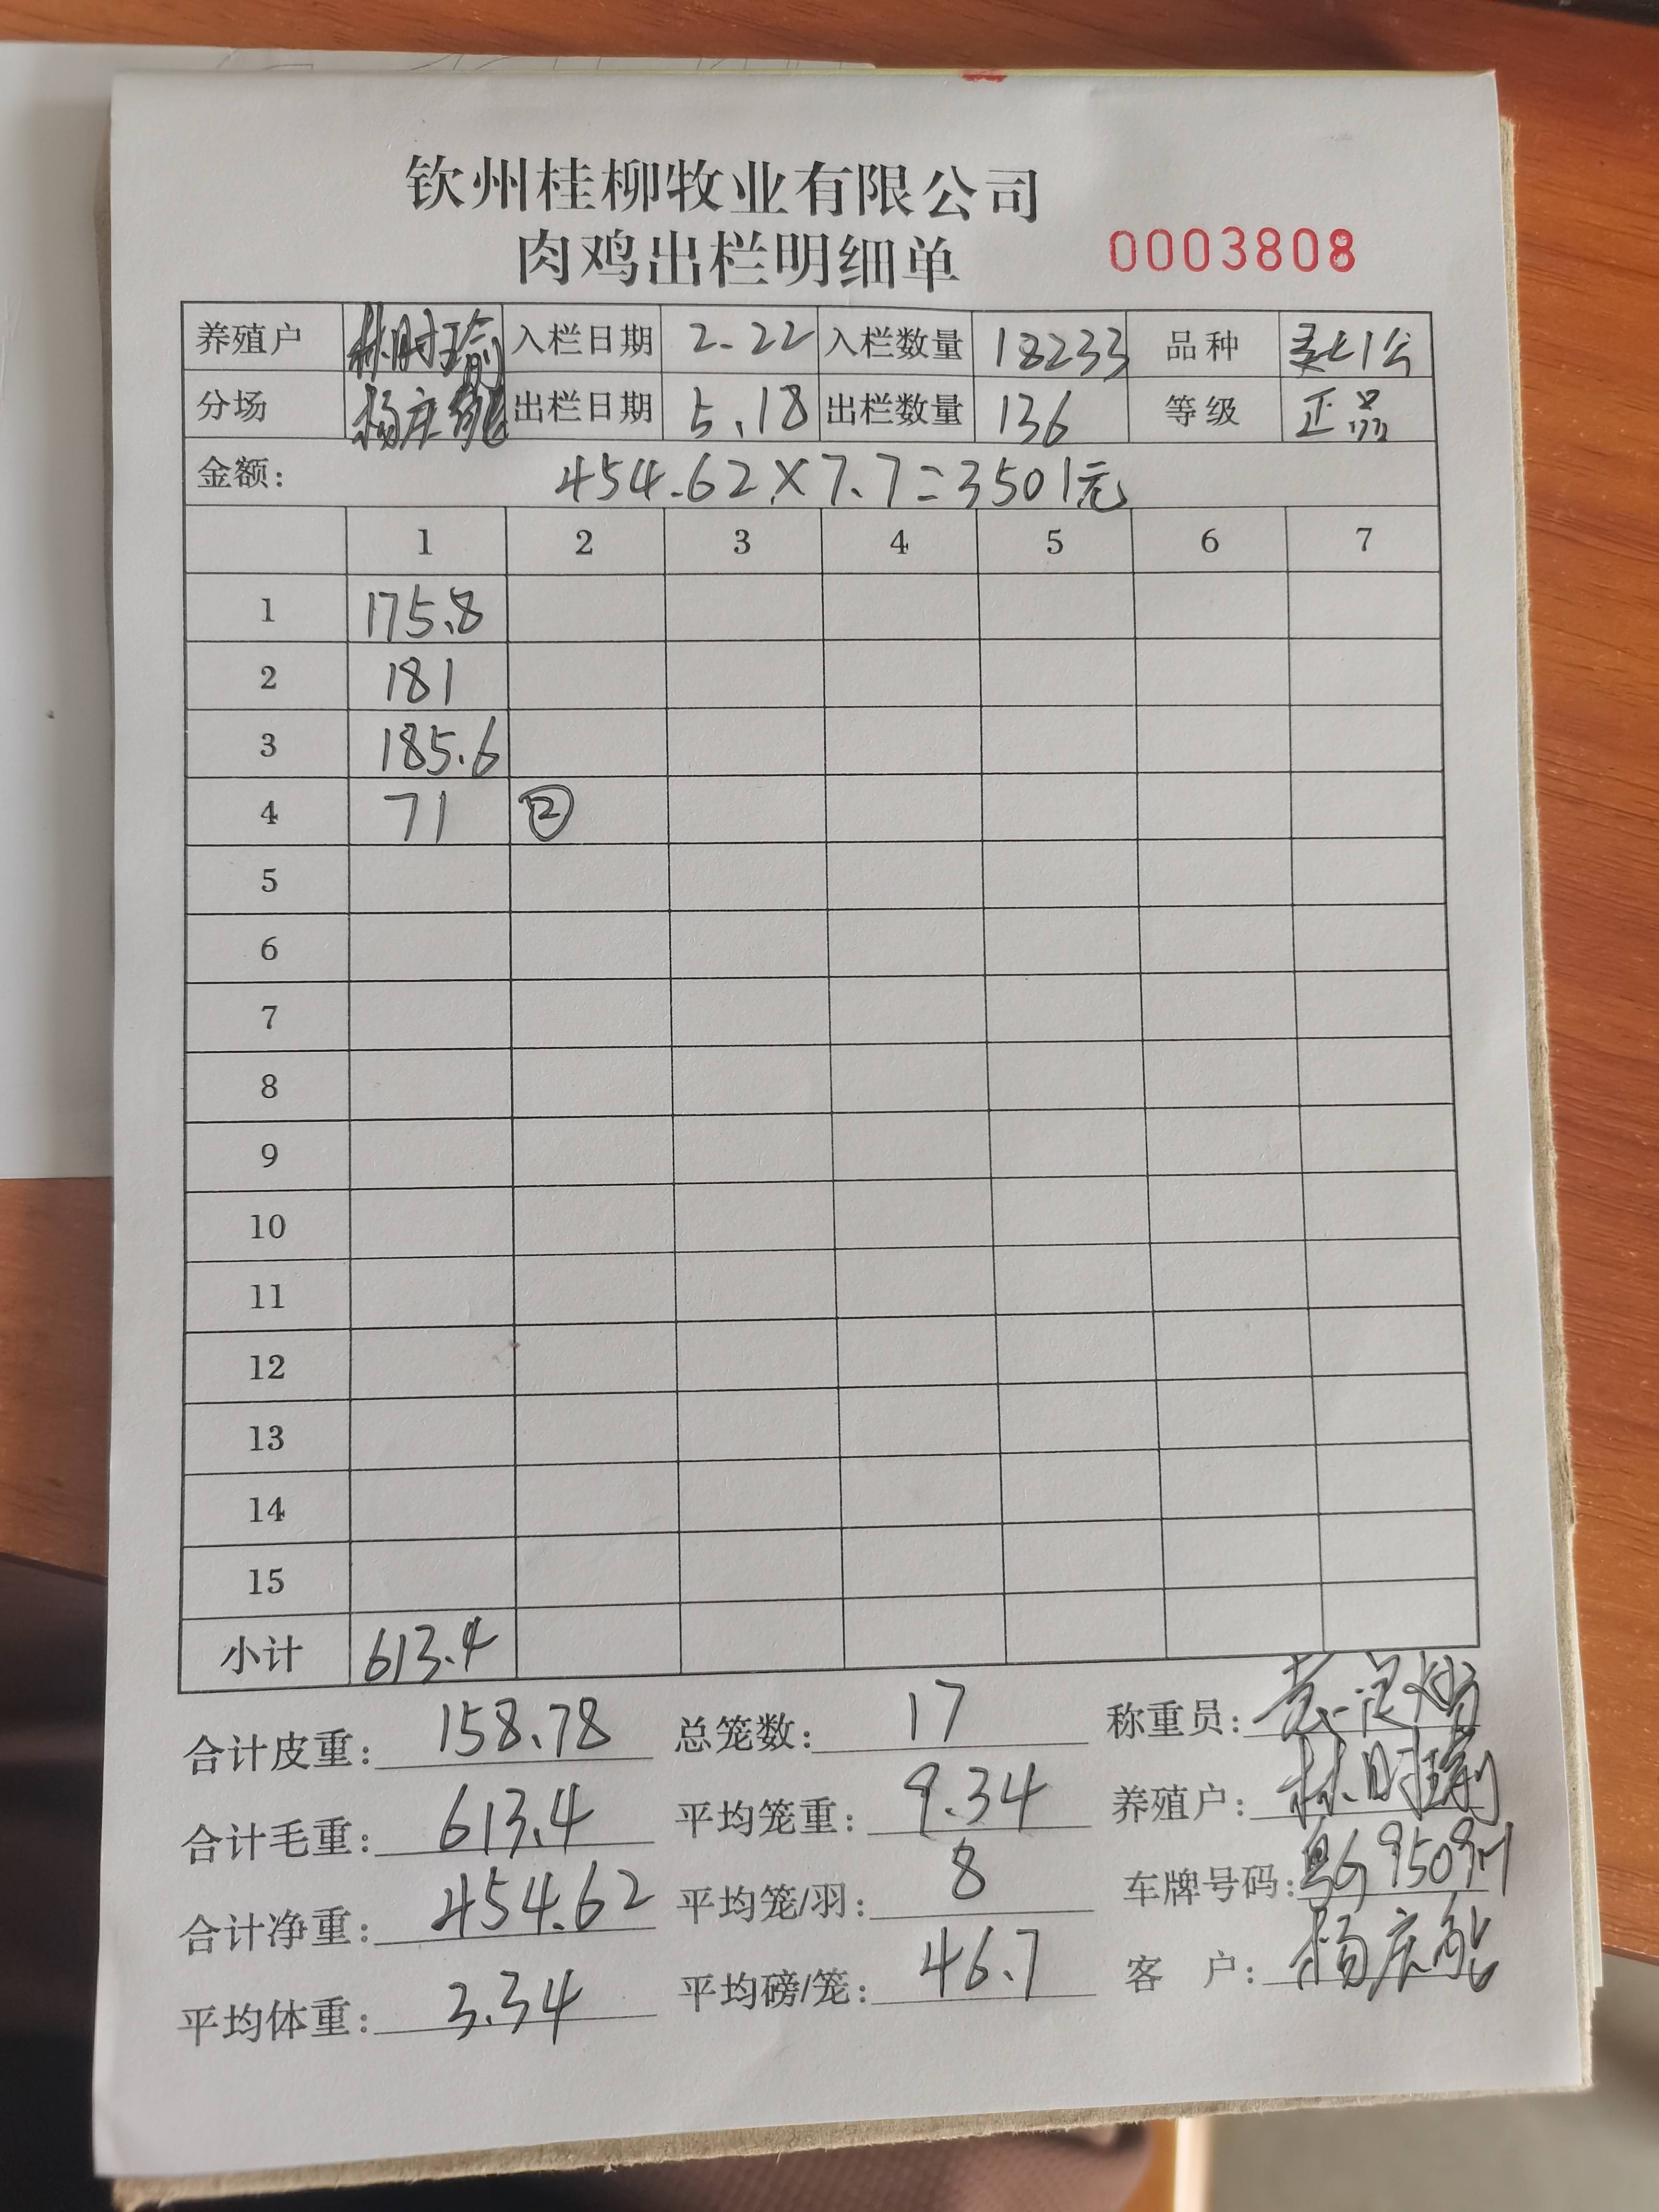 钦州桂柳牧业有限公司
肉鸡出栏明细单 0003808
养殖户 林时瑜 入栏日期 2.22 入栏数量 18233 品种
分场 杨庆能 出栏日期 5.18 出栏数量 136 等级 正品
金额: 454.62×7.7=3501元
1 2 3 4 5 6 7
1 175.8
2 181
3 185.6
4 71 ②
5
6
7
8
9
10
11
12
13
14
15
小计 613.4
合计皮重: 158.78 总笼数: 17 称重员:
合计毛重: 613.4 平均笼重: 9.34 养殖户: 林时瑜
合计净重: 454.62 平均笼/羽: 8 车牌号码:
平均体重: 3.34 平均磅/笼: 46.7 客 户: 杨庆能